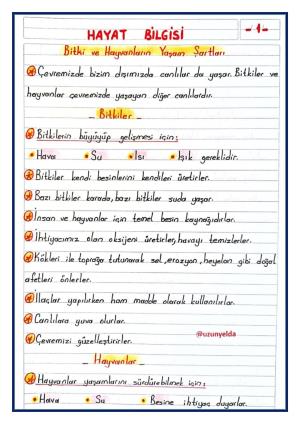 HAYAT BİLGİSİ
- 1 -
Bitki ve Hayvanların Yaşam Şartları
Çevremizde bizim dışımızda canlılar da yaşar. Bitkiler ve
hayvanlar çevremizde yaşayan diğer canlılardır.
- Bitkiler -
Bitkilerin büyüyüp gelişmesi için;
• Hava • Su • Isı • Işık gereklidir.
Bitkiler kendi besinlerini kendileri üretirler.
Bazı bitkiler karada, bazı bitkiler suda yaşar.
İnsan ve hayvanlar için temel besin kaynağıdırlar.
İhtiyacımız olan oksijeni üretirler, havayı temizlerler.
Kökleri ile toprağa tutunarak sel, erozyon, heyelan gibi doğal
afetleri önlerler.
İlaçlar yapılırken ham madde olarak kullanılırlar.
Canlılara yuva olurlar.
@uzunyelda
Çevremizi güzelleştirirler.
- Hayvanlar -
Hayvanlar yaşamlarını sürdürebilmek için;
• Hava • Su • Besine ihtiyaç duyarlar.